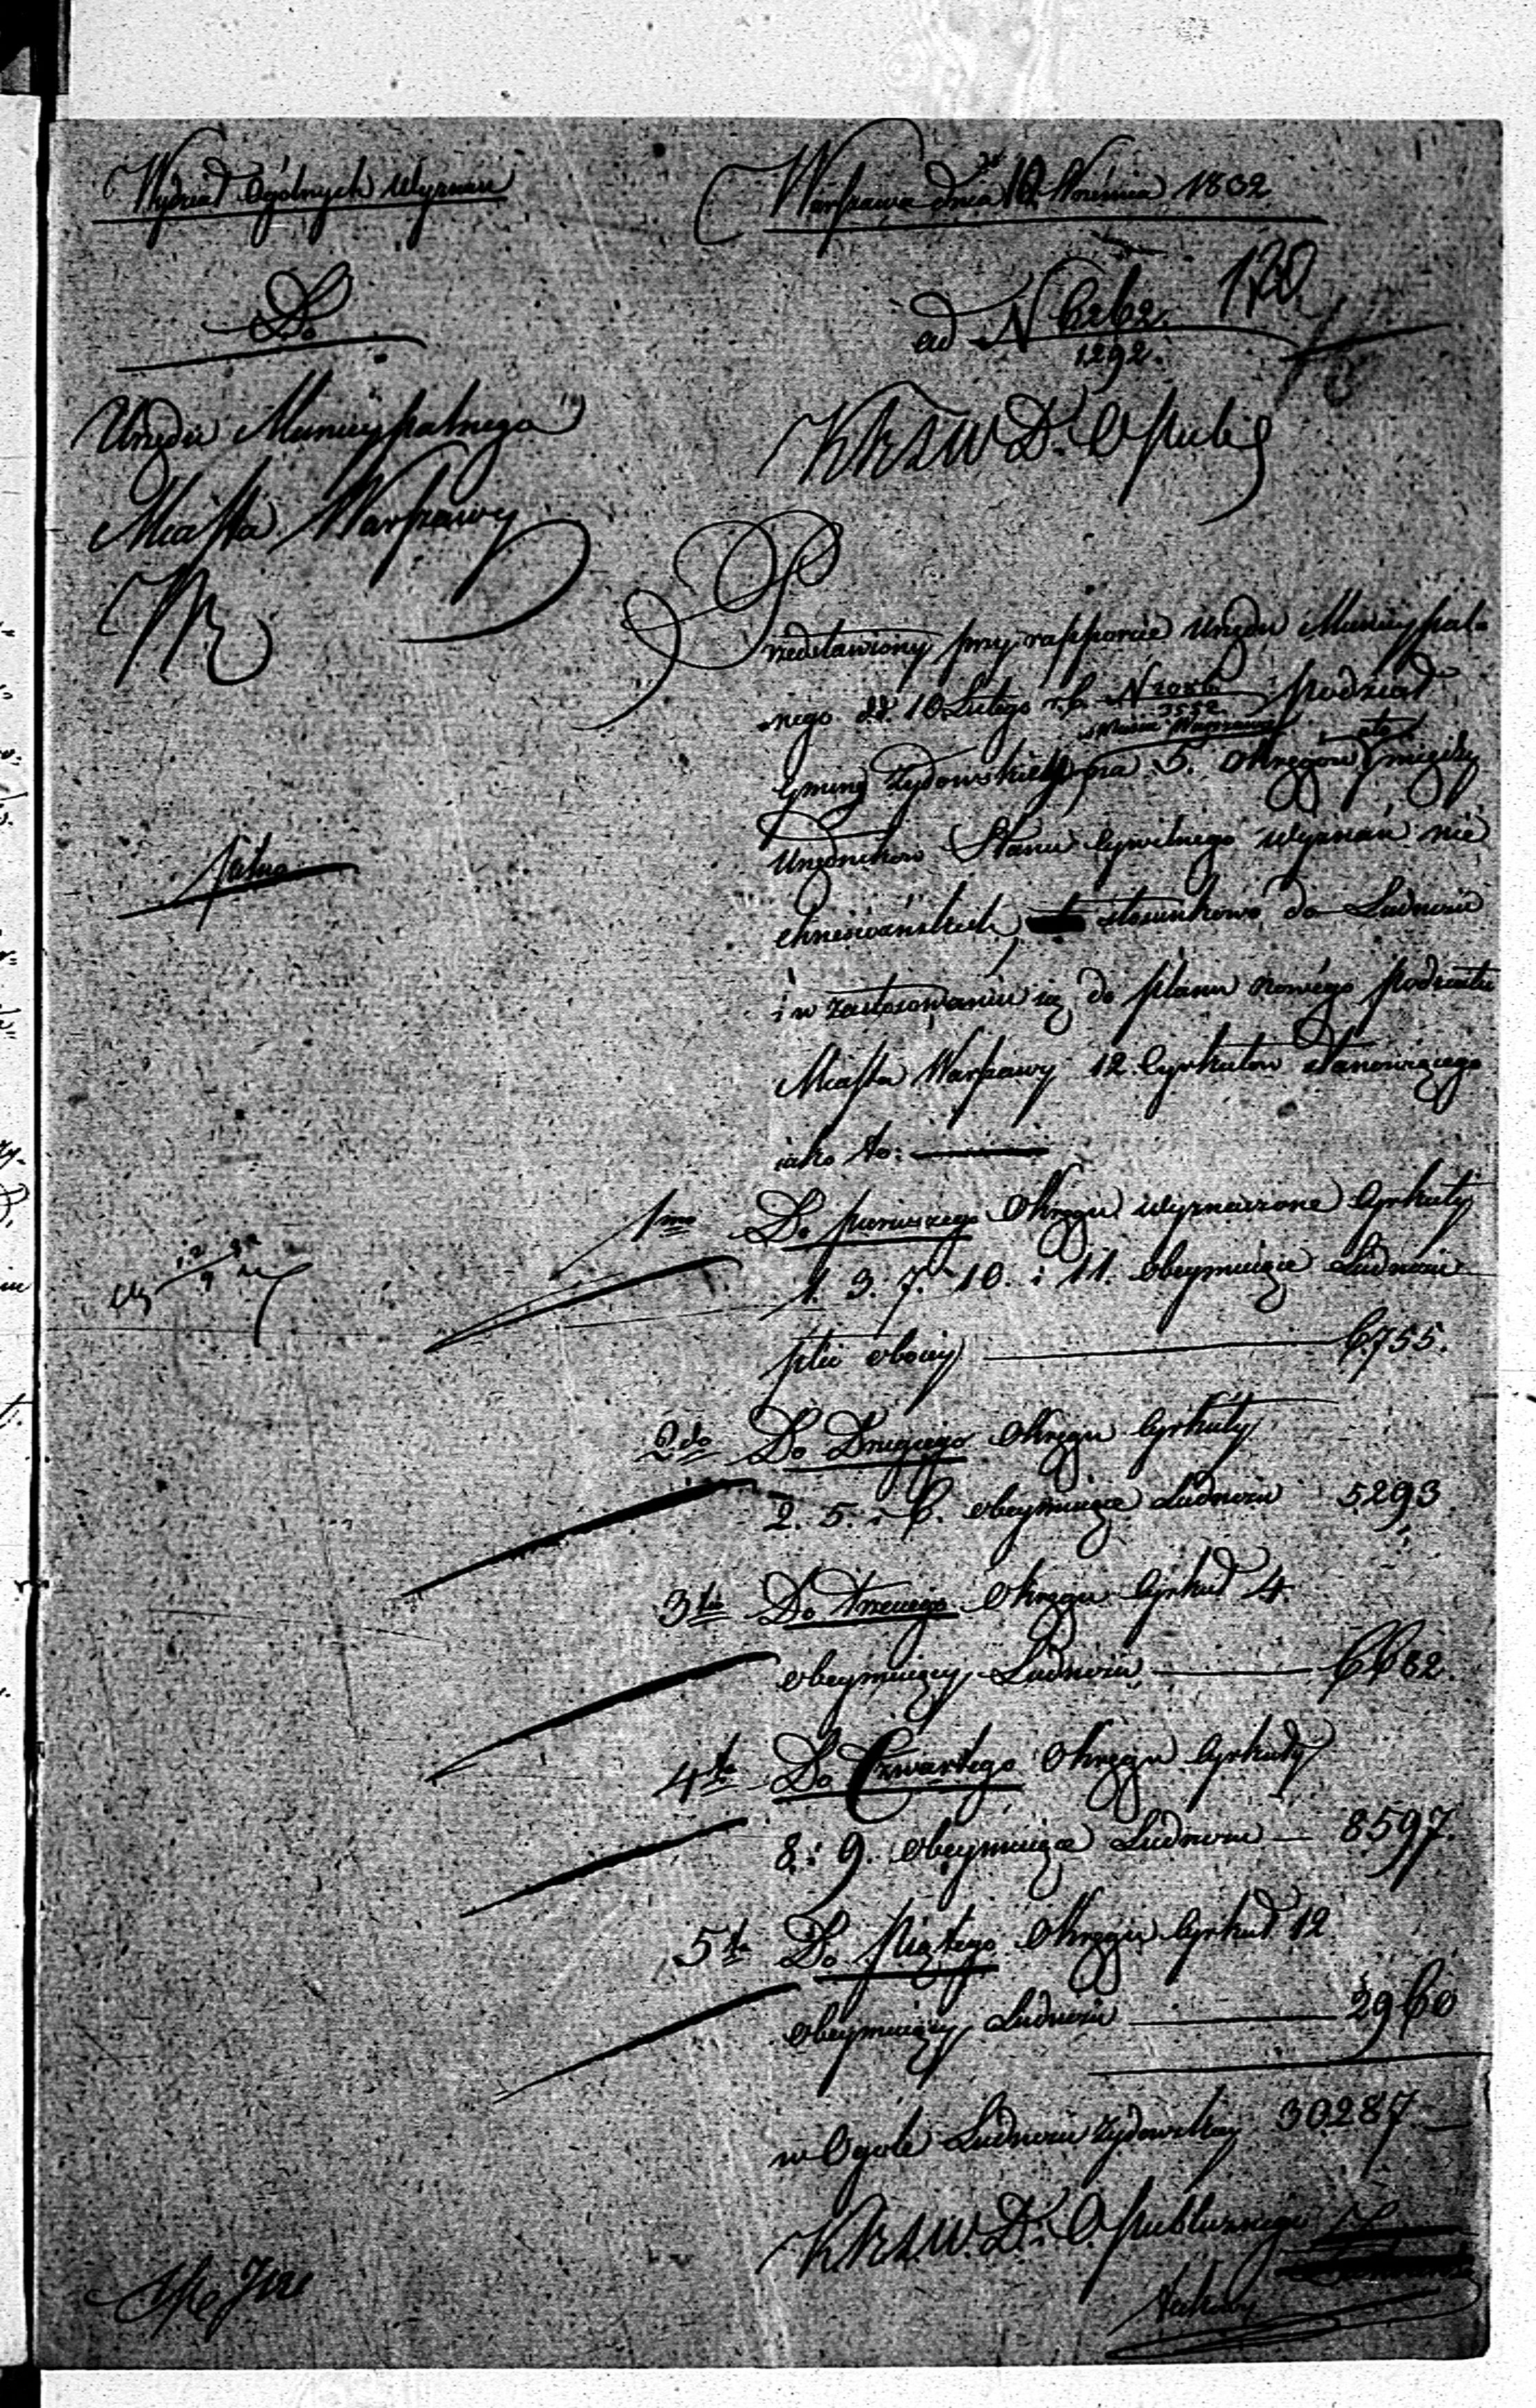 Wydział Ogólnych Wyznań
Warszawa dnia Września 1832
Do
ad N 6262. 120
1292.
Urzędu Municypalnego
Miasta Warszawy
K R S W D. i O publ
Przedstawiony przy rapporcie Urzędu Municypal-
-nego dd. 10 Lutego r. b. N podział
3552
Miasta Warszawy
Gminy Żydowskiey na 5. Okręgów między
Urzędników Stanu Cywilnego wyznań nie
Chrześciańskich stosunkowo do Ludności
i w zastosowaniu się do planu nowego podziału
Miasta Warszawy 12 Cyrkułów stanowiącego
iako to:
1mo Do pierwszego Okręgu wyznaczone Cyrkuły
1. 3. 7. 10. i 11. obeymuiące Ludności
płci oboiey 6755.
2do Do Drugiego Okręgu Cyrkuły
2. 5. i 6. obeymuiące Ludności 5293
3tio Do trzeciego Okręgu Cyrkuł 4.
obeymuiący Ludności 6682.
4to Do Czwartego Okręgu Cyrkuły
8. i 9. obeymuiące Ludności 8597.
5to Do piątego Okręgu Cyrkuł 12
obeymuiący Ludności 2960
w Ogole Ludności żydowskiey 30287
K R S. W. D. i O. publicznego